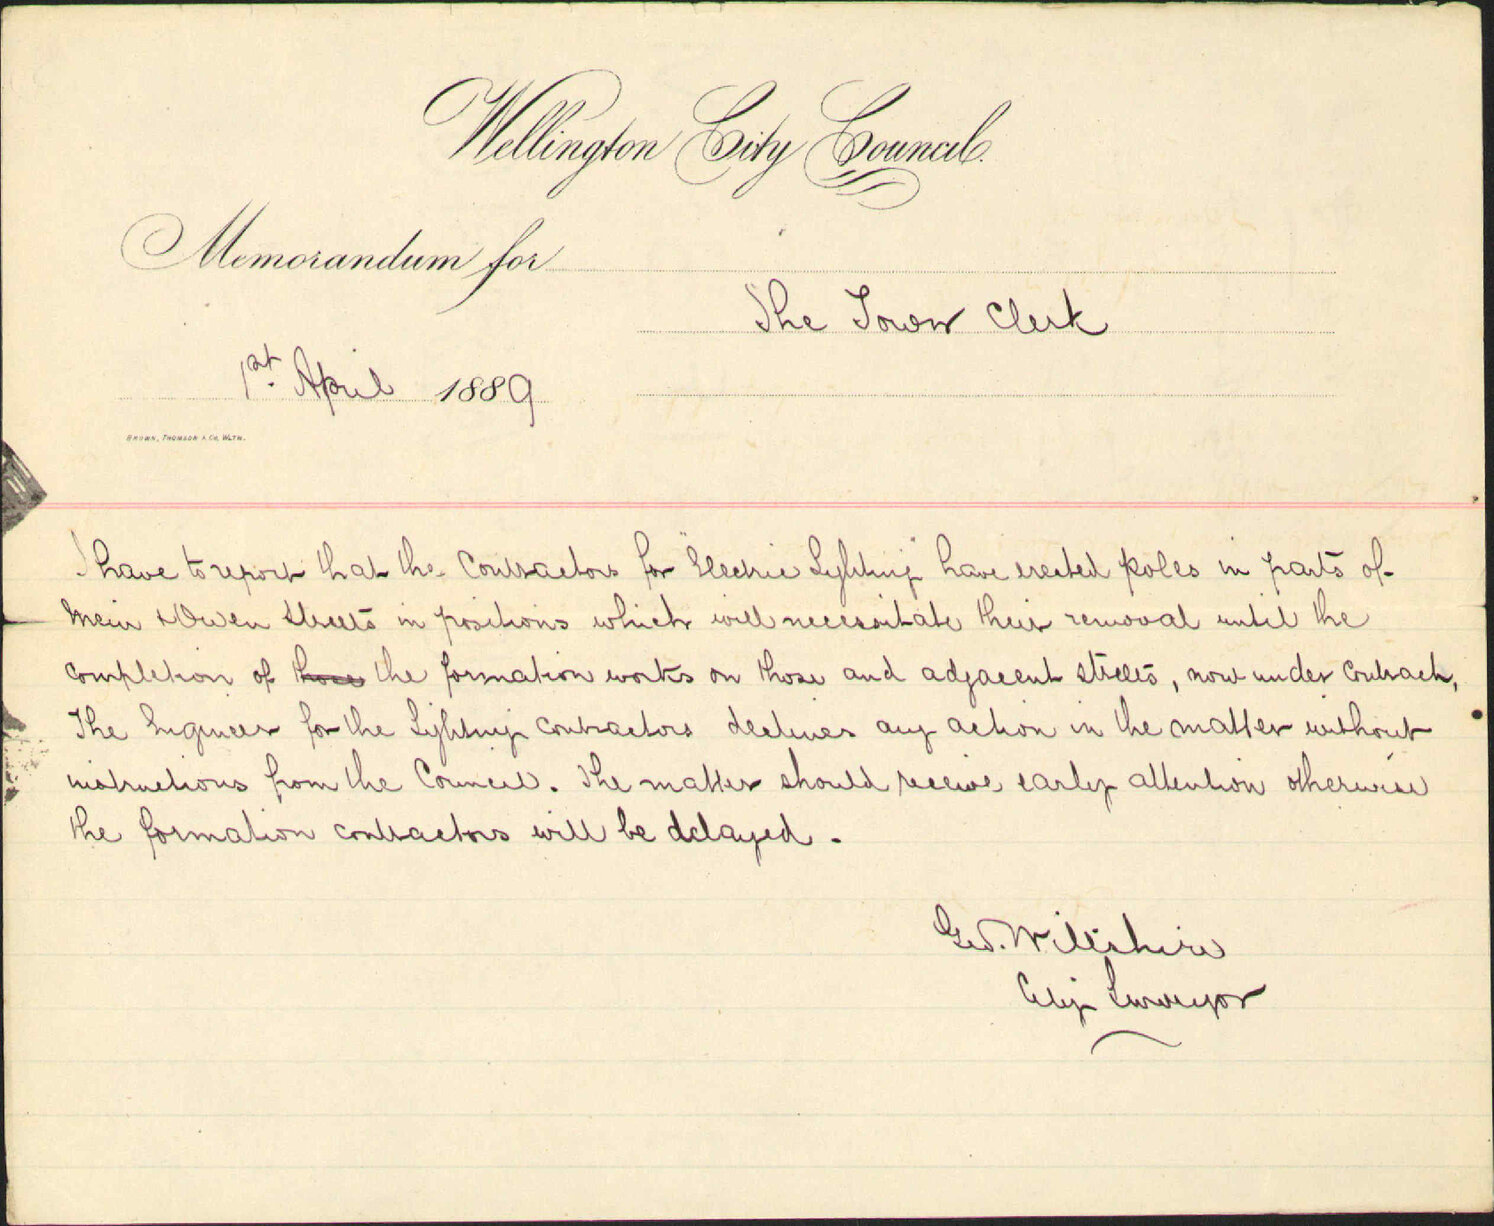 Wellington City Council.
Memorandum for
The Town Clerk
1st. April 1889
BROWN, THOMSON & Co, WLTN.
I have to report that the Contractors for "Electric Lighting" have erected poles in parts of
Mein & Owen Streets in positions which will necessitate their removal until the
completion of those the formation works on those and adjacent streets, now under contract,
The Engineer for the Lighting contractors declines any action in the matter without
instructions from the Council. The matter should receive early attention otherwise
the formation contractors will be delayed.
Geo. Wiltshire
City Surveyor